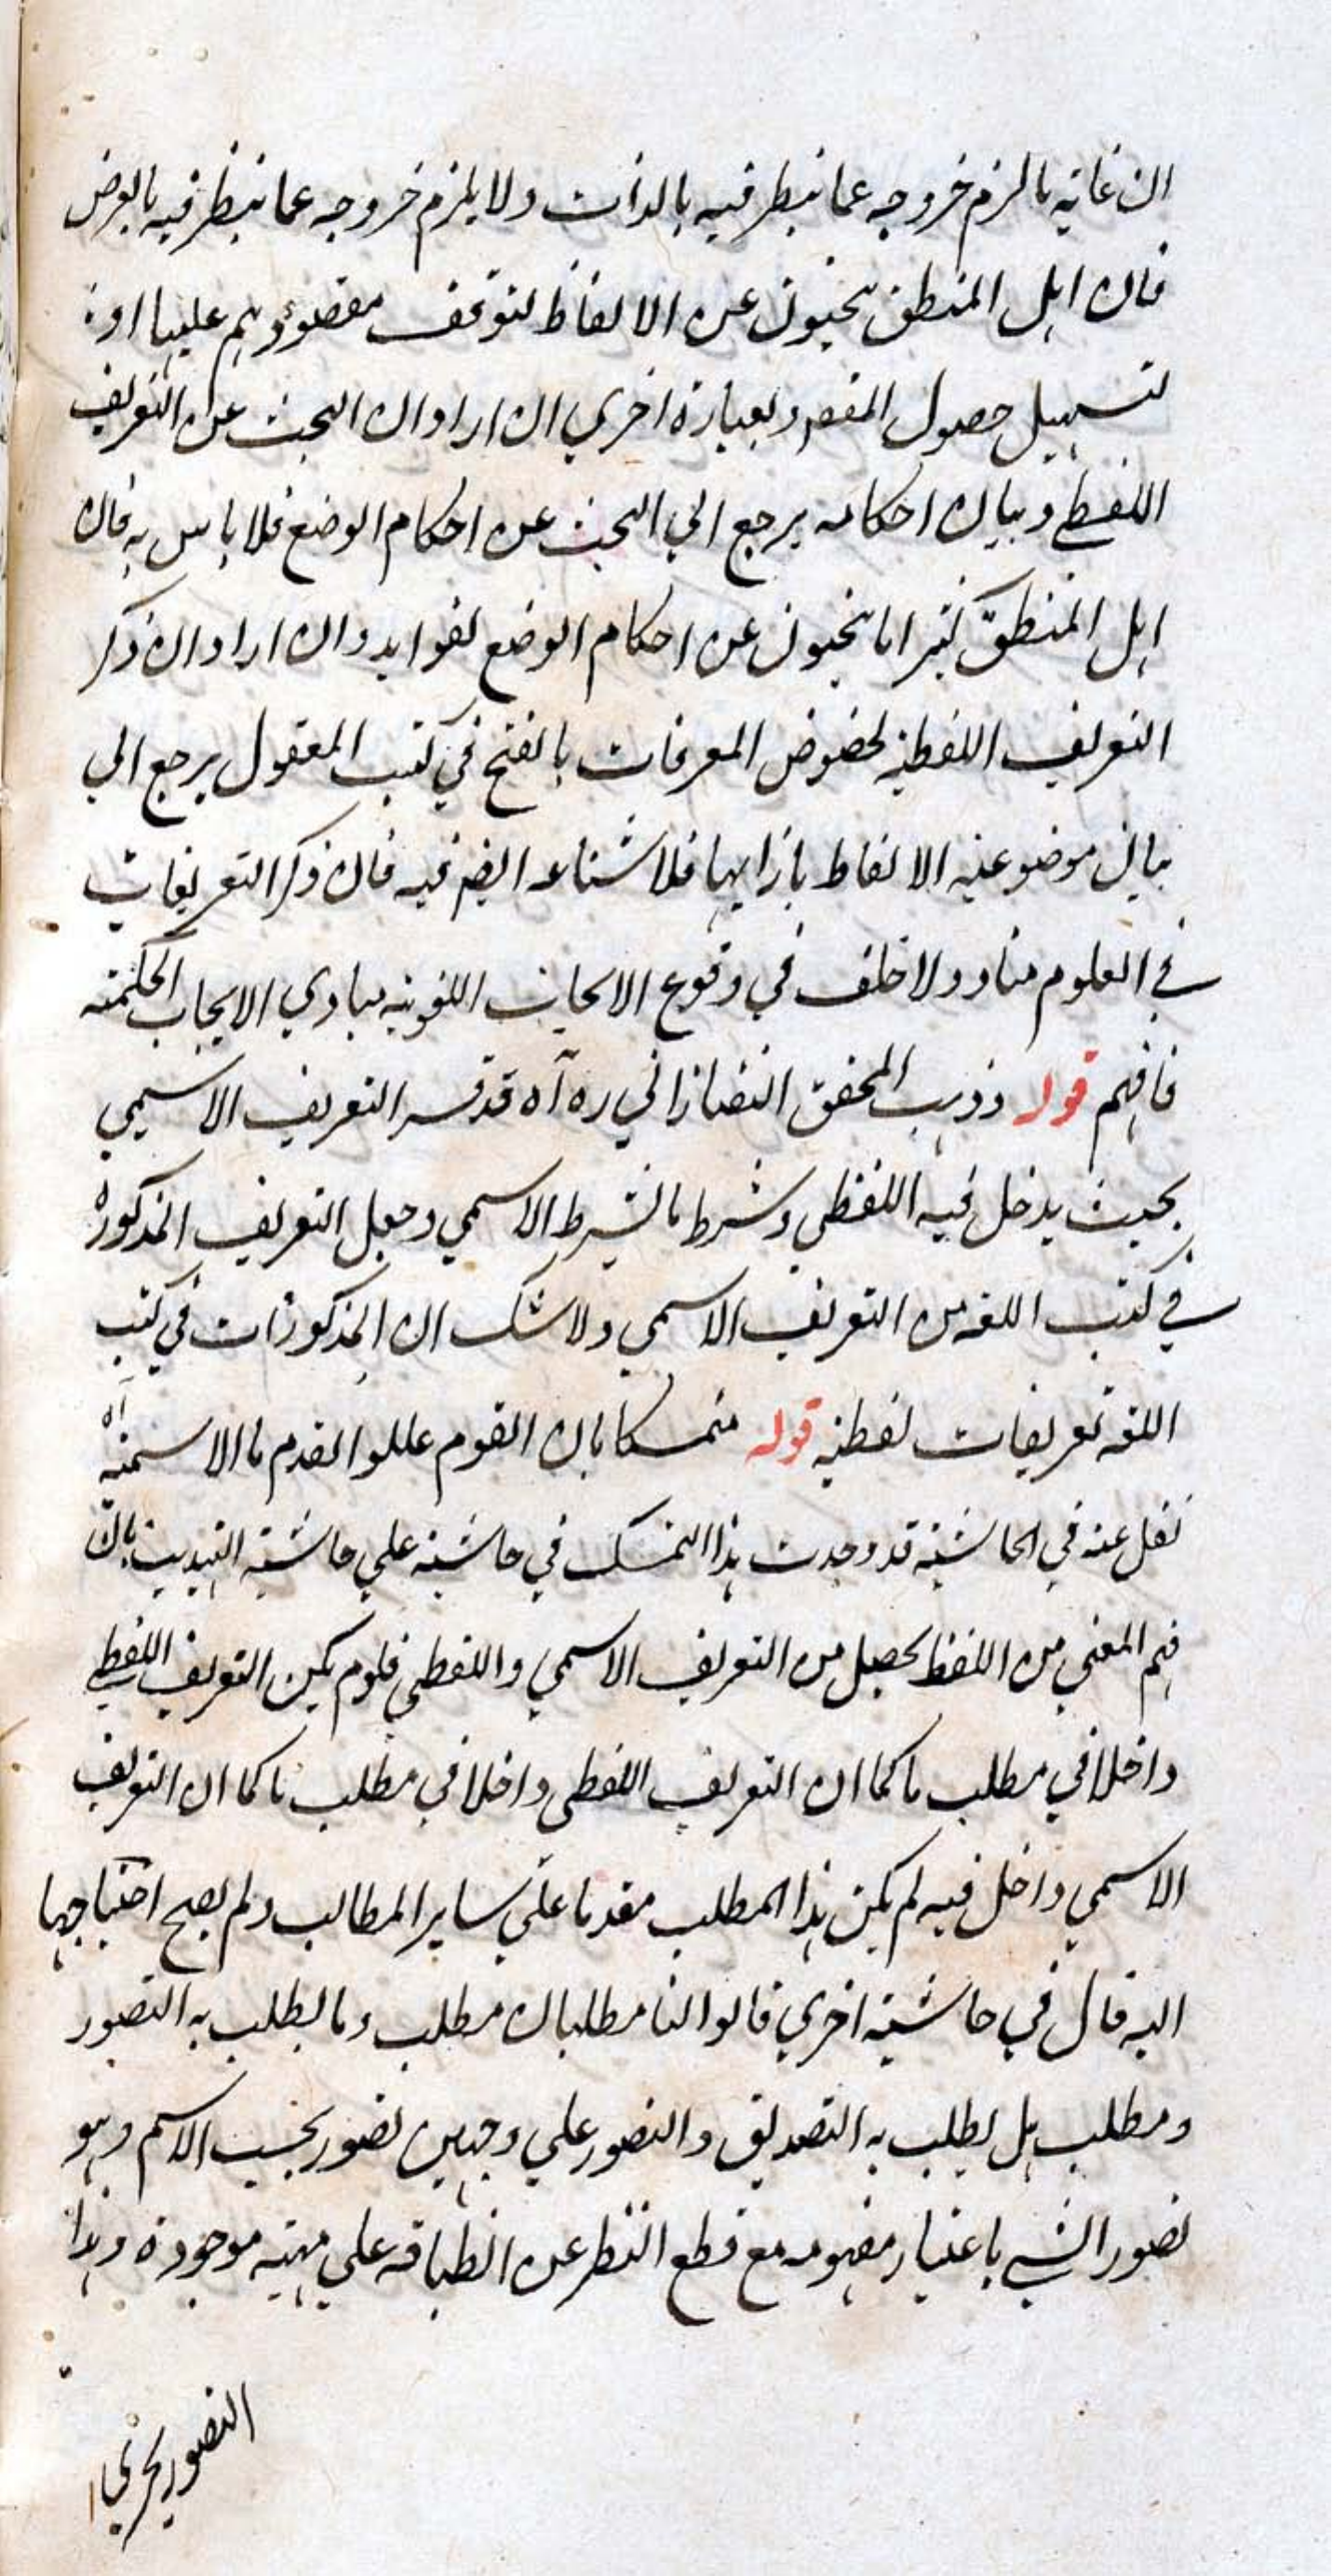 ان غاية ما لزم خروجه عما ينظر فيه بالذات ولا يلزم خروجه عما ينظر فيه بالعرض
فان اهل المنطق يبحثون عن الالفاظ لتوقف مقصودهم عليها او
لتسهيل حصول المقصود وبعبارة اخري ان اراد ان البحث عن التعريف
اللفظي وبيان احكامه يرجع الي البحث عن احكام الوضع فلا باس به فان
اهل المنطق كثيرا ما يبحثون عن احكام الوضع لفوايد وان اراد ان ذكر
التعريف اللفظية لخصوص المعرفات بالفتح في كتب المعقول يرجع الي
بيان موضوعية الالفاظ بازايها فلا شناعه ايضم فيه فان ذكر التعريفات
في العلوم مباد ولا خلف في وقوع الابحاث اللغوية مبادي الابحاث الحكمته
فافهم قوله وذهب المحقق التفتازاني ره آه قد فسر التعريف الاسمي
بحيث يدخل فيه اللفظي وشرط بالشرط الاسمي وجعل التعريف المذكورة
في كتب اللغه من التعريف الاسمي ولا شك ان المذكورات في كتب
اللغه تعريفات لفظية قوله متمسكا بان القوم عللوا تقدم ما الاسمية آه
نقل عنه في الحاشية قد وجدت هذا التمسك في حاشية علي حاشية التهذيب بان
فهم المعني من اللفظ يحصل من التعريف الاسمي واللفظي فلو لم يكن التعريف اللفظي
داخلا في مطلب ما كما ان التعريف اللفظي داخلا في مطلب ما كما ان التعريف
الاسمي داخل فيه لم يكن هذا المطلب مقدما علي ساير المطالب ولم يصح احتياجها
اليه قال في حاشية اخري قالوا لنا مطلبان مطلب وما يطلب به التصور
ومطلب هل يطلب به التصديق والتصور علي وجهين تصور بحسب الاسم وهو
تصور الشي باعتبار مفهومه مع قطع النظر عن انطباقه علي مهية موجودة وهذا
التصور يجري